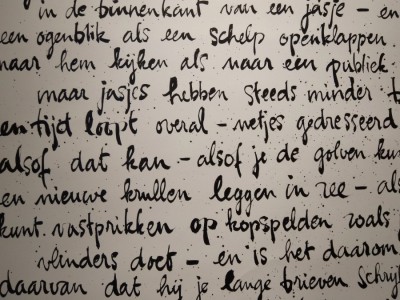 in de binnenkant van een jasje – en
een ogenblik als een schelp openklappen
naar hem kijken als naar een publiek.
maar jasjes hebben steeds minder
en tijd loopt overal – netjes gedresseerd
alsof dat kan – alsof je de golven kun
en nieuwe krullen leggen in zee – als
kunt vastprikken op kopspelden zoals
vlinders doet – en is het daarom
daarvan dat hij je lange brieven schrijf